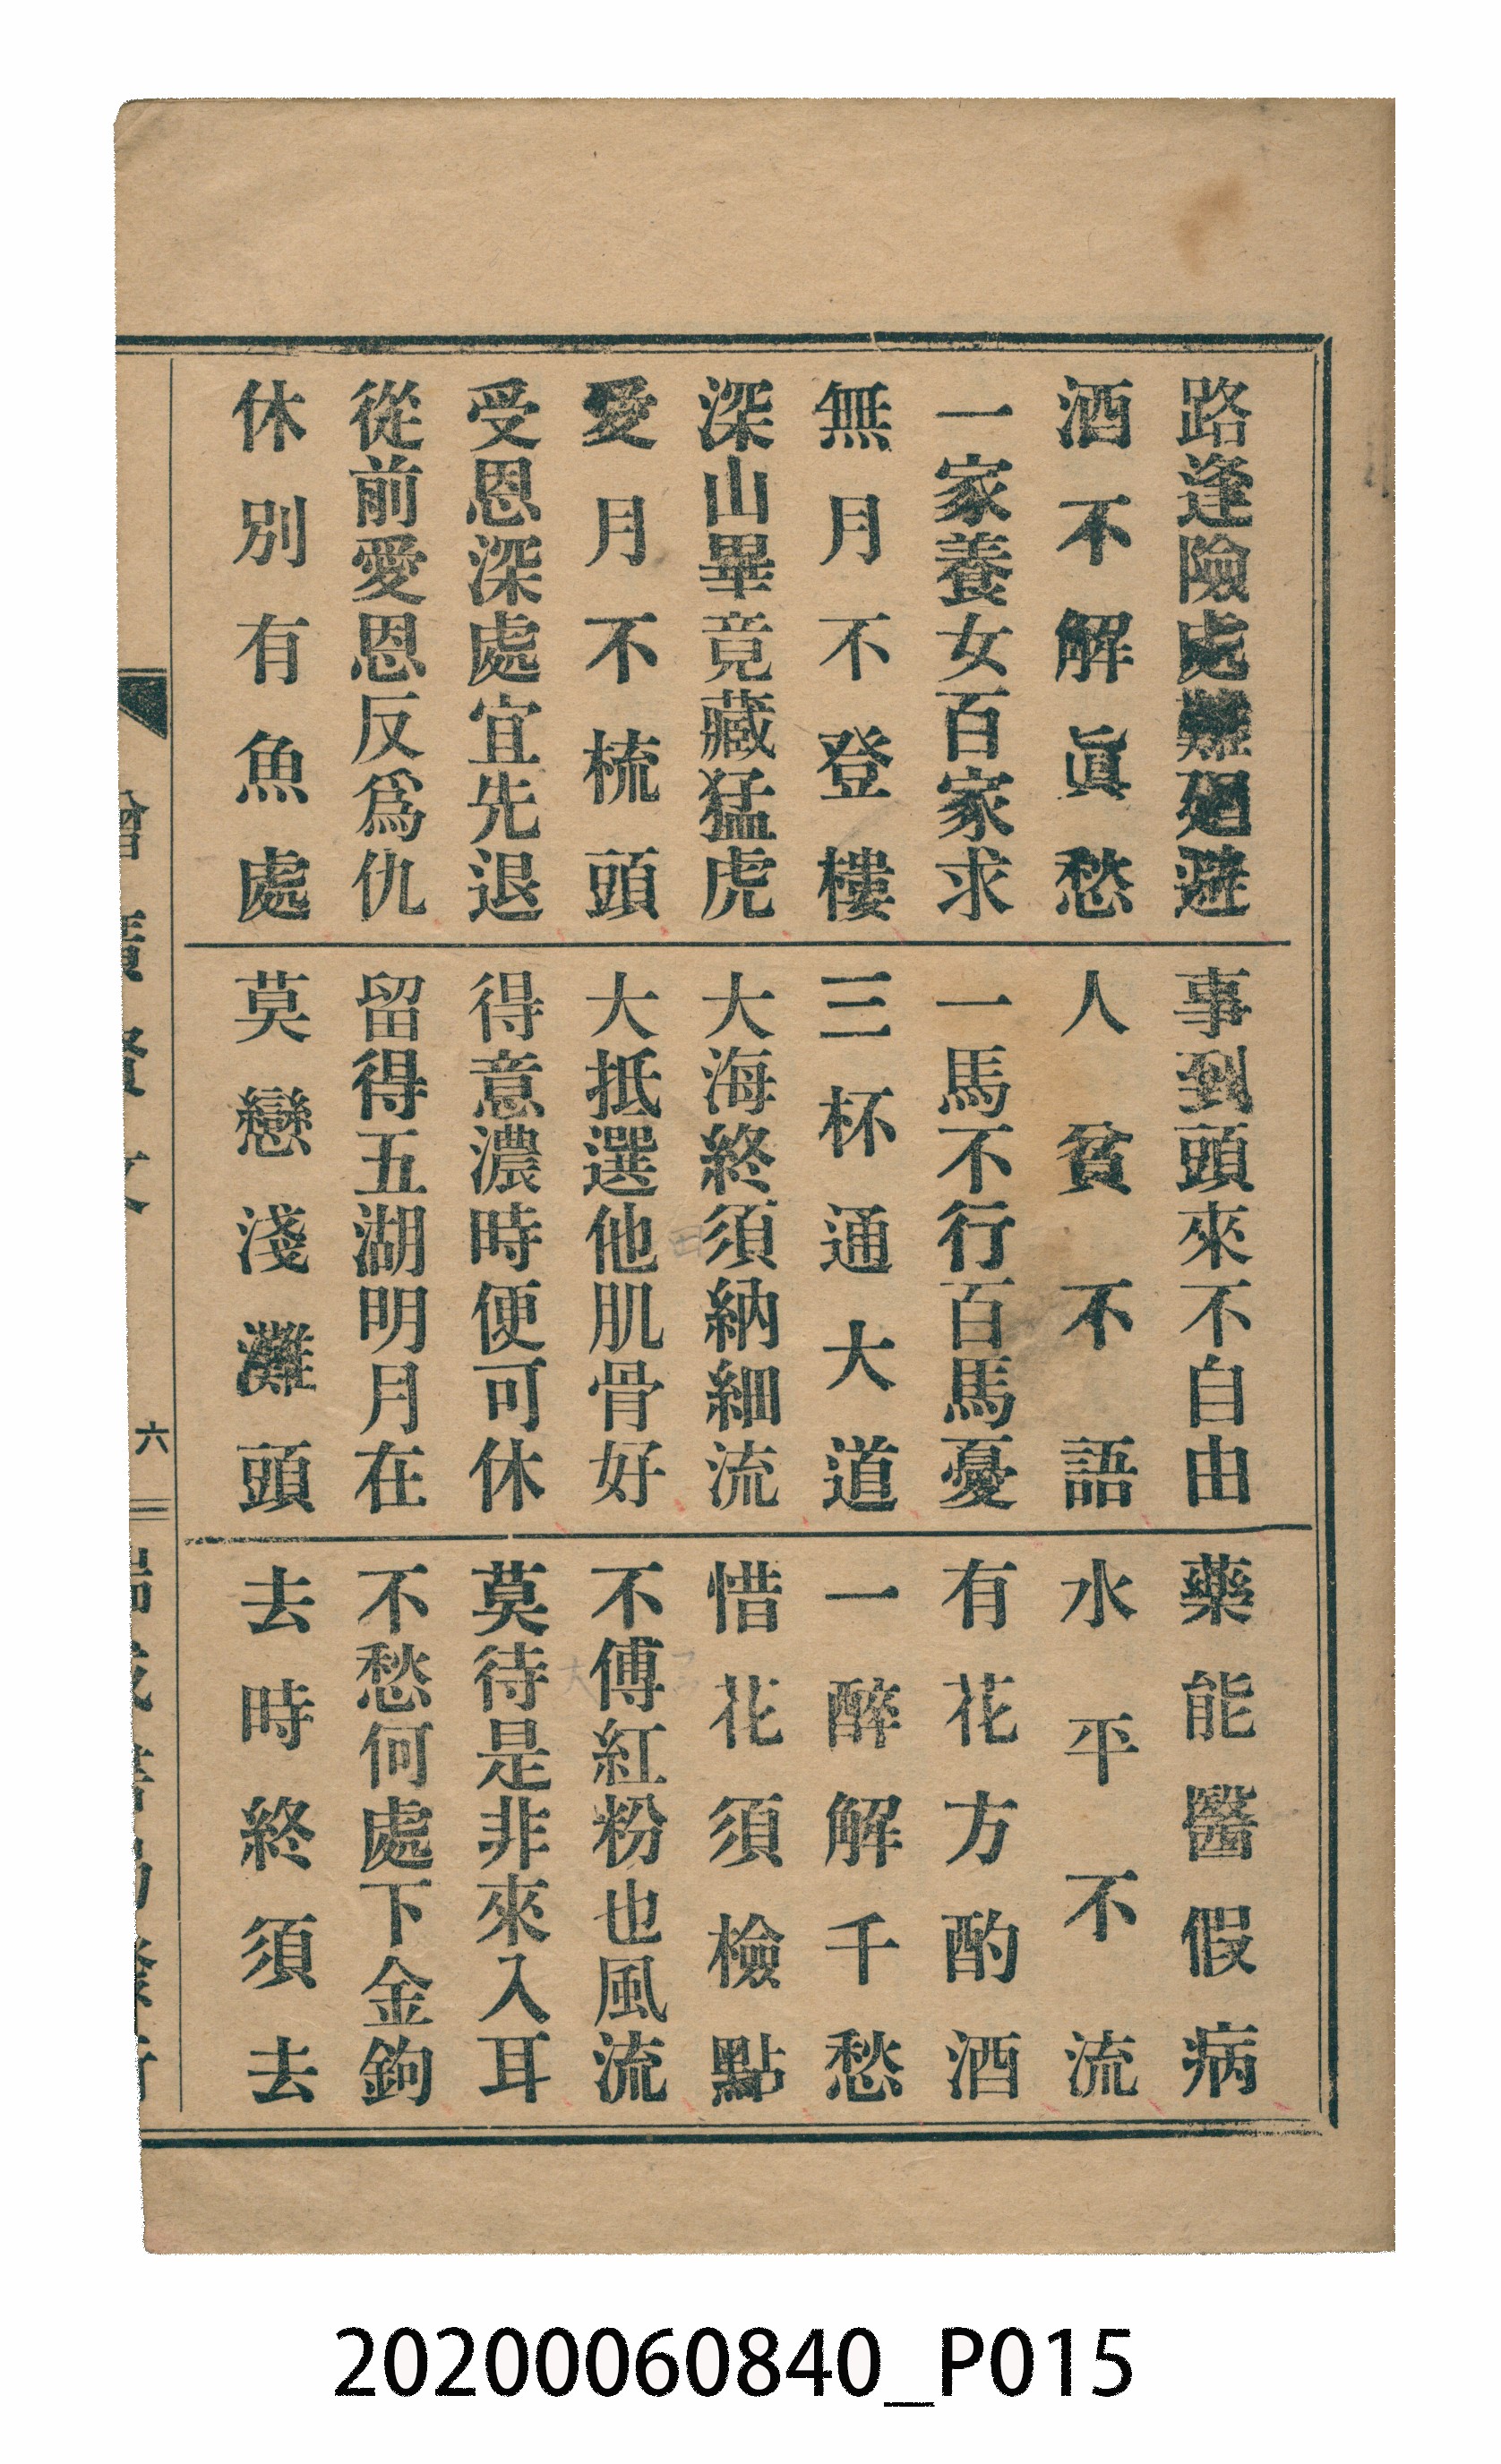 路逢險處難廻避
事到頭來不自由
藥能醫假病
酒不解眞愁
人貧不語
水平不流
一家養女百家求
一馬不行百馬憂
有花方酌酒
無月不登樓
三杯通大道
一醉解千愁
深山畢竟藏猛虎
大海終須納細流
惜花須檢點
愛月不梳頭
大抵選他肌骨好
不傅紅粉也風流
受恩深處宜先退
得意濃時便可休
莫待是非來入耳
從前愛恩反爲仇
留得五湖明月在
不愁何處下金鉤
休別有魚處
莫戀淺灘頭
去時終須去
六
20200060840_P015